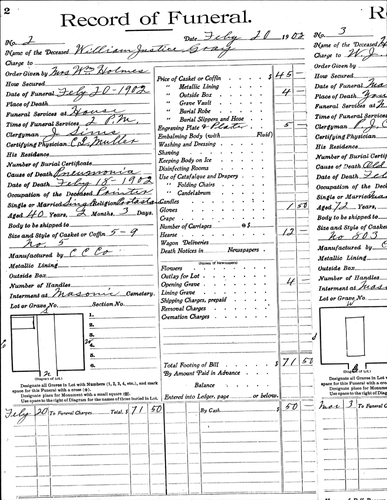 2
Record of Funeral.
No. 2 Date Feby 20 1902
Name of the Deceased William Justice Gray
Charge to
Order Given by Mrs Wm Holmes
How Secured
Date of Funeral Feby 20-1902
Place of Death
Funeral Services at House
Time of Funeral Services 2 P.M.
Clergyman J. Sims
Certifying Physician C L Muller
His Residence
Number of Burial Certificate
Cause of Death Pneumonia
Date of Death Feby 18-1902
Occupation of the Deceased Painter
Single or Married Single Religion
Aged 40 Years, 2 Months, 3 Days.
Body to be shipped to
Size and Style of Casket or Coffin 5-9
No. 5
Manufactured by C C Co
Metallic Lining
Outside Box
Number of Handles
Interment at Masonic Cemetery.
Lot or Grave No. Section No.
1.
2.
3.
4.
5.
6.
(Diagram of Lot.)
Designate all Graves in Lot with Numbers (1, 2, 3, 4, etc.), and mark
space for this Funeral with a cross
Designate place for Monument with a small square
Use space to the right of Diagram for the names of those buried in Lot.
Price of Casket or Coffin $ 45 -
" Metallic Lining
" Outside Box 4
" Grave Vault
" Burial Robe
" Burial Slippers and Hose
Engraving Plate & Plate 5 -
Embalming Body (with Fluid)
Washing and Dressing
Shaving
Keeping Body on Ice
Disinfecting Rooms
Use of Catafalque and Drapery
" Folding Chairs
" Candelabrum
Candles
Gloves 1 50
Crape
Number of Carriages @ $
Hearse 12 -
Wagon Deliveries
Death Notices in Newspapers
(Names of Newspapers)
Flowers
Outlay for Lot
Opening Grave 4 -
Lining Grave
Shipping Charges, prepaid
Removal Charges
Cremation Charges
Total Footing of Bill $ 71 50
By Amount Paid in Advance
Balance
Entered into Ledger, page or below.
Feby 20 To Funeral Charges Total, $ 71 50 By Cash $ 50
3
No. 3
Name of the Deceased
Charge to W. J.
Order Given by
How Secured
Date of Funeral
Place of Death
Funeral Services at
Time of Funeral
Clergyman
Certifying Physician
His Residence
Number of Burial
Cause of Death Old
Date of Death
Occupation of the
Single or Married
Aged 72 Years,
Body to be shipped
Size and Style of
No. 803
Manufactured by
Metallic Lining
Outside Box
Number of Handles
Interment at Mas
Lot or Grave No.
(Diagram of Lot.)
Designate all Graves in
space for this Funeral
Designate place for Mon
Use space to the right of
Mar 3 To Funeral